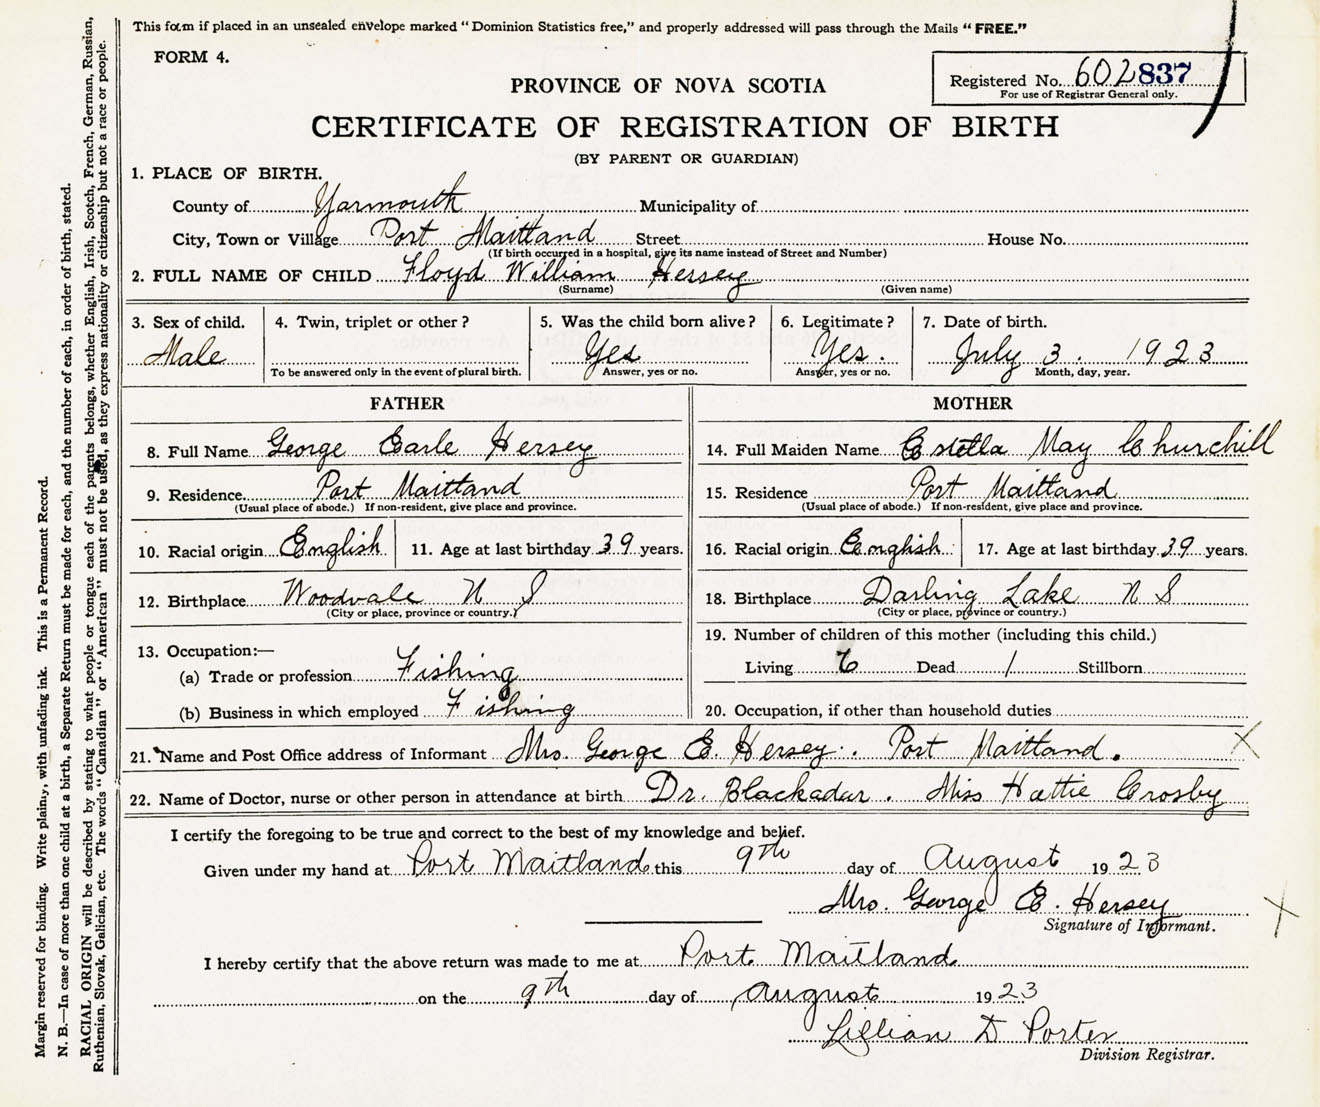 This form if placed in an unsealed envelope marked "Dominion Statistics free," and properly addressed will pass through the Mails "FREE."
FORM 4.
Registered No. 602837
For use of Registrar General only.
PROVINCE OF NOVA SCOTIA
CERTIFICATE OF REGISTRATION OF BIRTH
(BY PARENT OR GUARDIAN)
1. PLACE OF BIRTH.
County of Yarmouth Municipality of
City, Town or Village Port Maitland Street House No.
(If birth occurred in a hospital, give its name instead of Street and Number)
2. FULL NAME OF CHILD Floyd William Hersey
(Surname) (Given name)
3. Sex of child. 4. Twin, triplet or other? 5. Was the child born alive? 6. Legitimate? 7. Date of birth.
Male Yes Yes. July 3. 1923
To be answered only in the event of plural birth. Answer, yes or no. Answer, yes or no. Month, day, year.
FATHER MOTHER
8. Full Name George Earle Hersey 14. Full Maiden Name Estella May Churchill
9. Residence Port Maitland 15. Residence Port Maitland
(Usual place of abode.) If non-resident, give place and province. (Usual place of abode.) If non-resident, give place and province.
10. Racial origin English 11. Age at last birthday 39 years. 16. Racial origin English 17. Age at last birthday 39 years.
12. Birthplace Woodvale N S 18. Birthplace Darling Lake N S
(City or place, province or country.) (City or place, province or country.)
13. Occupation:— 19. Number of children of this mother (including this child.)
(a) Trade or profession Fishing Living 6 Dead 1 Stillborn
(b) Business in which employed Fishing 20. Occupation, if other than household duties
21. Name and Post Office address of Informant Mrs. George E. Hersey. Port Maitland.
22. Name of Doctor, nurse or other person in attendance at birth Dr. Blackadar. Miss Hattie Crosby
I certify the foregoing to be true and correct to the best of my knowledge and belief.
Given under my hand at Port Maitland this 9th day of August 1923
Mrs. George E. Hersey
Signature of Informant.
I hereby certify that the above return was made to me at Port Maitland
on the 9th day of August 1923
Lillian D Porter
Division Registrar.
Margin reserved for binding. Write plainly, with unfading ink. This is a Permanent Record.
N. B.—In case of more than one child at a birth, a Separate Return must be made for each, and the number of each, in order of birth, stated.
RACIAL ORIGIN will be described by stating to what people or tongue each of the parents belongs, whether English, Irish, Scotch, French, German, Russian,
Ruthenian, Slovak, Galician, etc. The words "Canadian" or "American" must not be used, as they express nationality or citizenship but not a race or people.